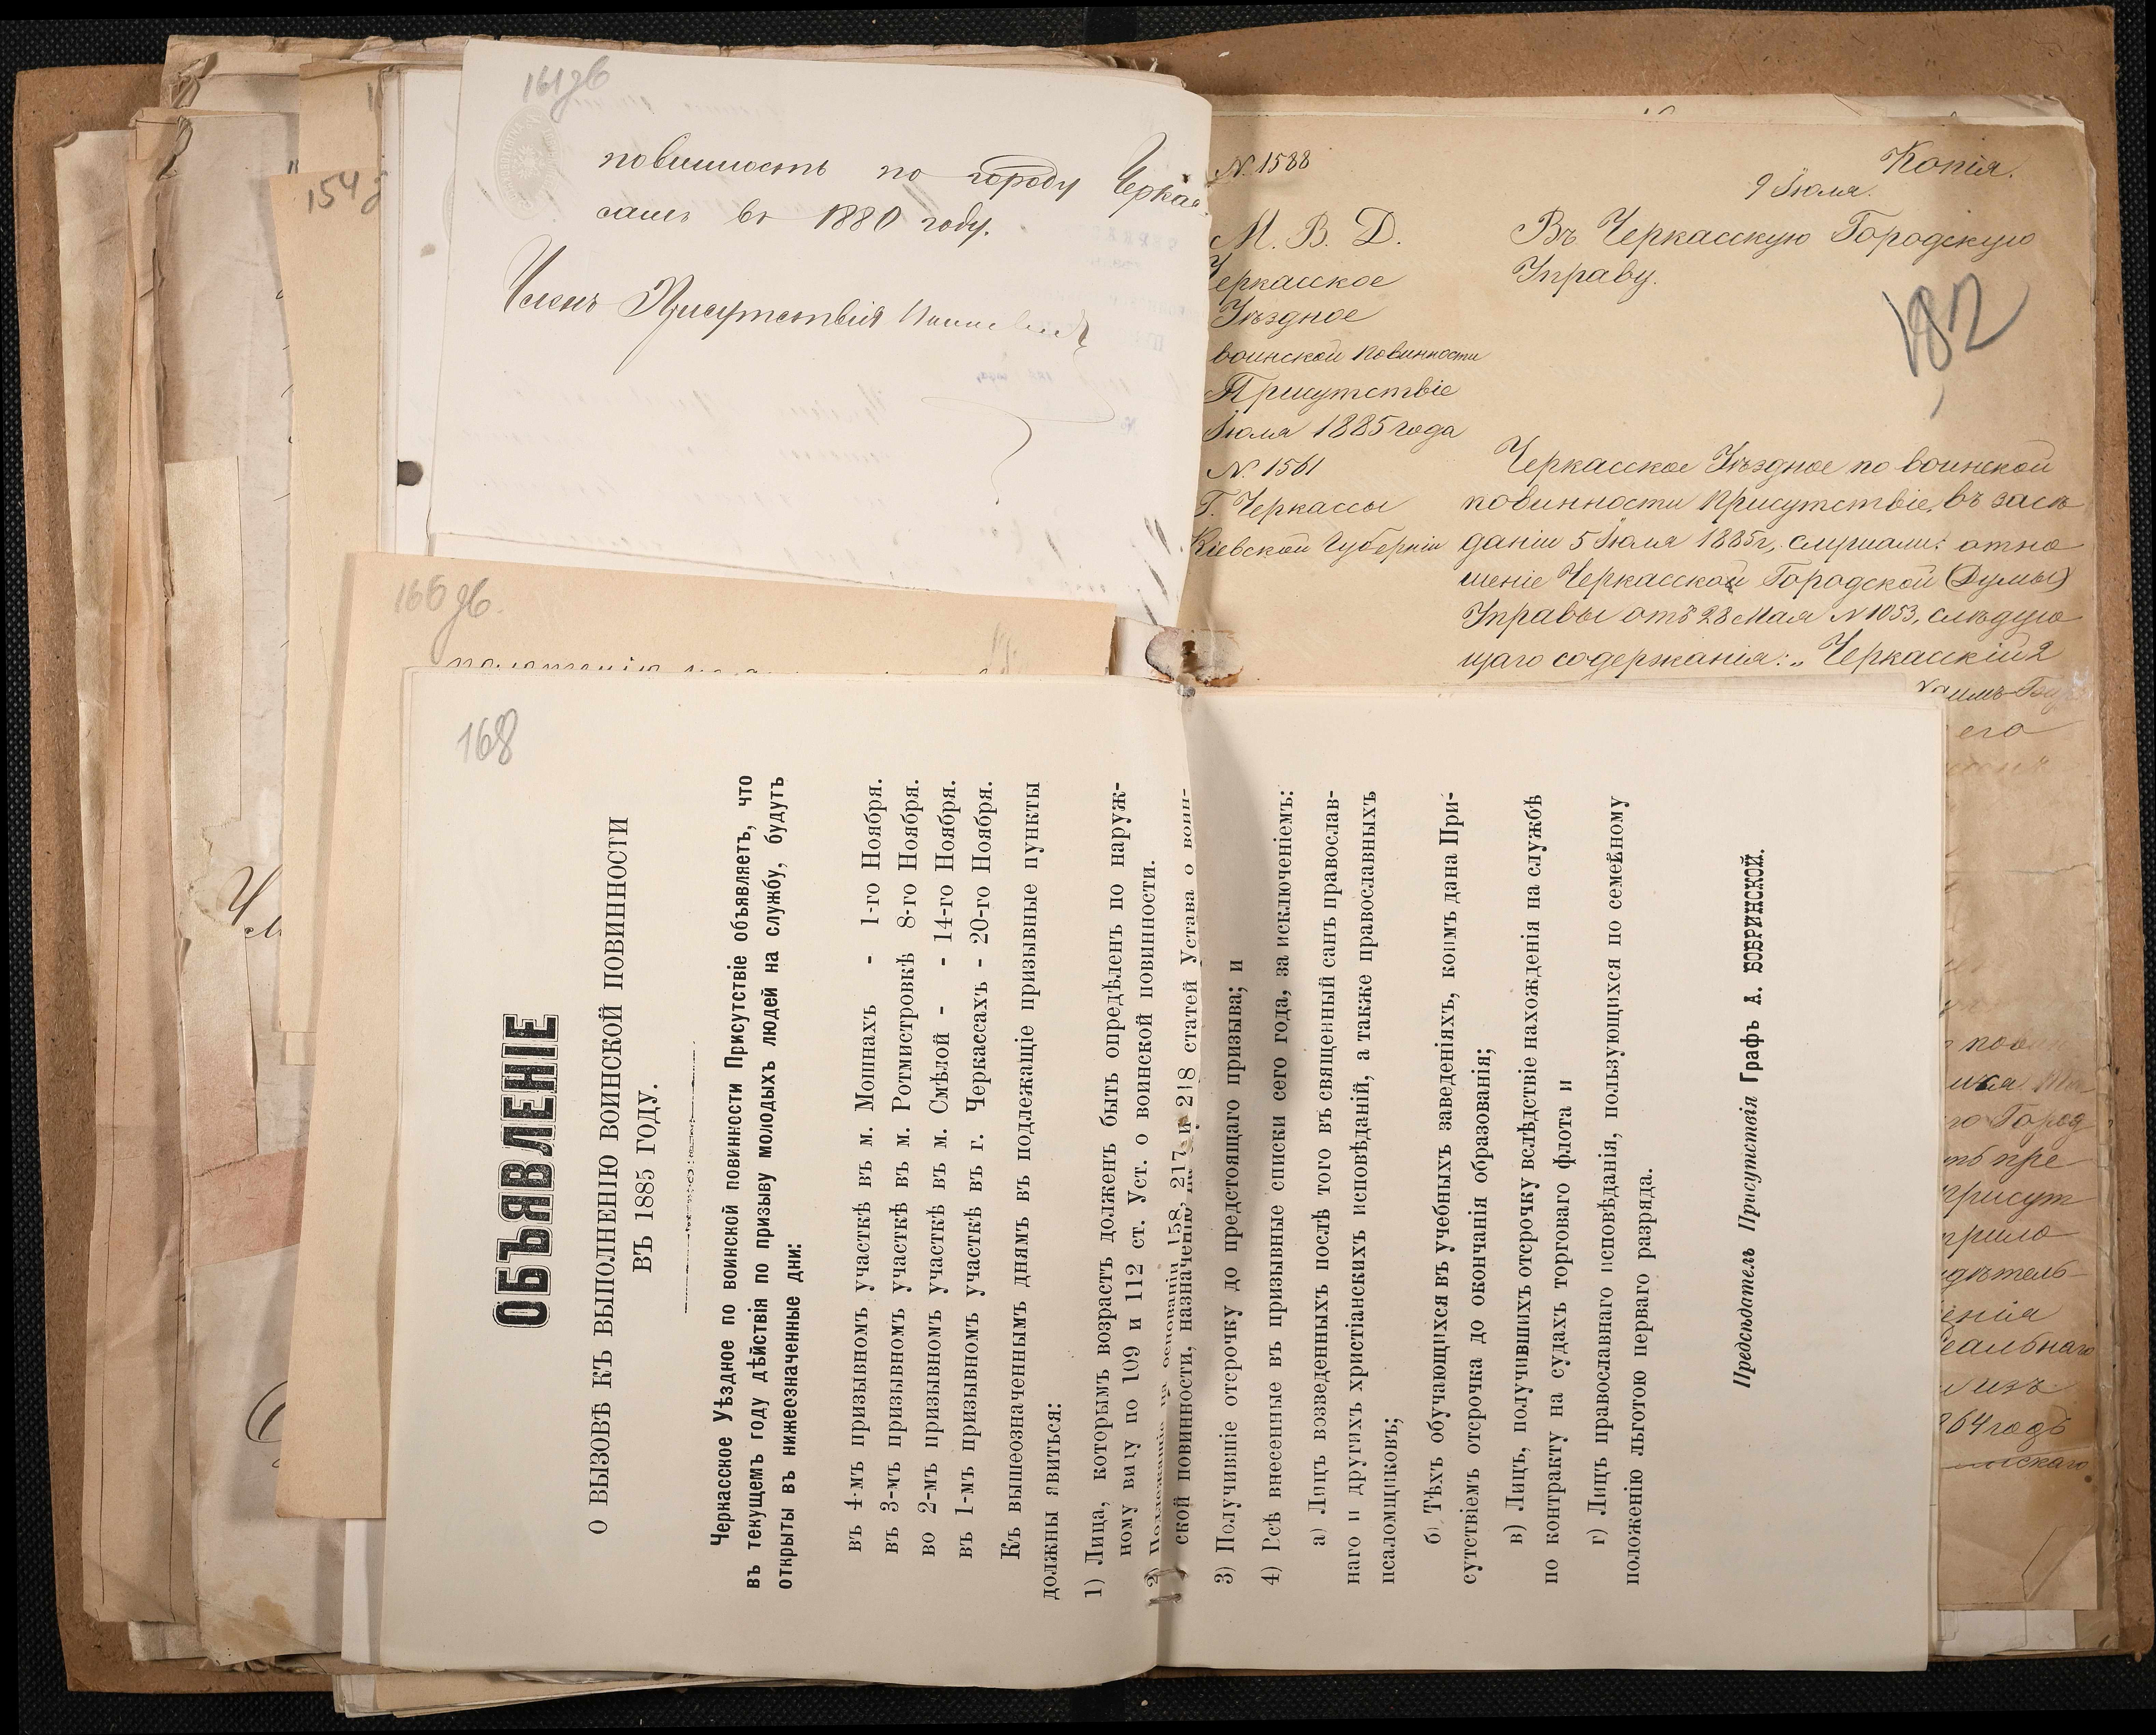 161 дб
повинность по городу Черка
сами въ 1880 году.
Членъ Присутствія
154
166 дб.
№ 1588
Копія.
9 Іюля.
М. В. Д.
Черкасское
Уѣздное
воинской повинности
Присутствіе
Іюля 1885 года
№ 1561
Г. Черкассы
Кіевской Губерніи
Въ Черкасскую Городскую
Управу.
182
Черкасское Уѣздное по воинской
повинности Присутствіе, въ засѣ
даніи 5 Іюля 1885 г., слушали: отно
шеніе Черкасской Городской (Думы)
Управы отъ 28 Мая № 1053, слѣдую
щаго содержанія: „Черкасскій 2
его
го Город
пре
присут
прило
дѣтель
енія
еальнаго
изъ
864 годъ
скаго
168
ОБЪЯВЛЕНІЕ
О ВЫЗОВѢ КЪ ВЫПОЛНЕНІЮ ВОИНСКОЙ ПОВИННОСТИ
ВЪ 1885 ГОДУ.
Черкасское Уѣздное по воинской повинности Присутствіе объявляетъ, что
въ текущемъ году дѣйствія по призыву молодыхъ людей на службу, будутъ
открыты въ нижеозначенные дни:
въ 4-мъ призывномъ участкѣ въ м. Мошнахъ - 1-го Ноября.
въ 3-мъ призывномъ участкѣ въ м. Ротмистровкѣ 8-го Ноября.
во 2-мъ призывномъ участкѣ въ м. Смѣлой - - 14-го Ноября.
въ 1-мъ призывномъ участкѣ въ г. Черкассахъ - 20-го Ноября.
Къ вышеозначеннымъ днямъ въ подлежащіе призывные пункты
должны явиться:
1) Лица, которымъ возрастъ долженъ быть опредѣленъ по наруж-
ному виду по 109 и 112 ст. Уст. о воинской повинности.
2) Подлежащіе на основаніи 158, 217 и 218 статей Устава о воин-
ской повинности, назначенію
3) Получившіе отсрочку до предстоящаго призыва; и
4) Всѣ внесенные въ призывные списки сего года, за исключеніемъ:
а) Лицъ возведенныхъ послѣ того въ священный санъ православ-
наго и другихъ христіанскихъ исповѣданій, а также православныхъ
псаломщиковъ;
б) Тѣхъ обучающихся въ учебныхъ заведеніяхъ, коимъ дана При-
сутствіемъ отсрочка до окончанія образованія;
в) Лицъ, получившихъ отсрочку вслѣдствіе нахожденія на службѣ
по контракту на судахъ торговаго флота и
г) Лицъ православнаго исповѣданія, пользующихся по семейному
положенію льготою перваго разряда.
Предсѣдатель Присутствія Графъ А. БОБРИНСКОЙ.